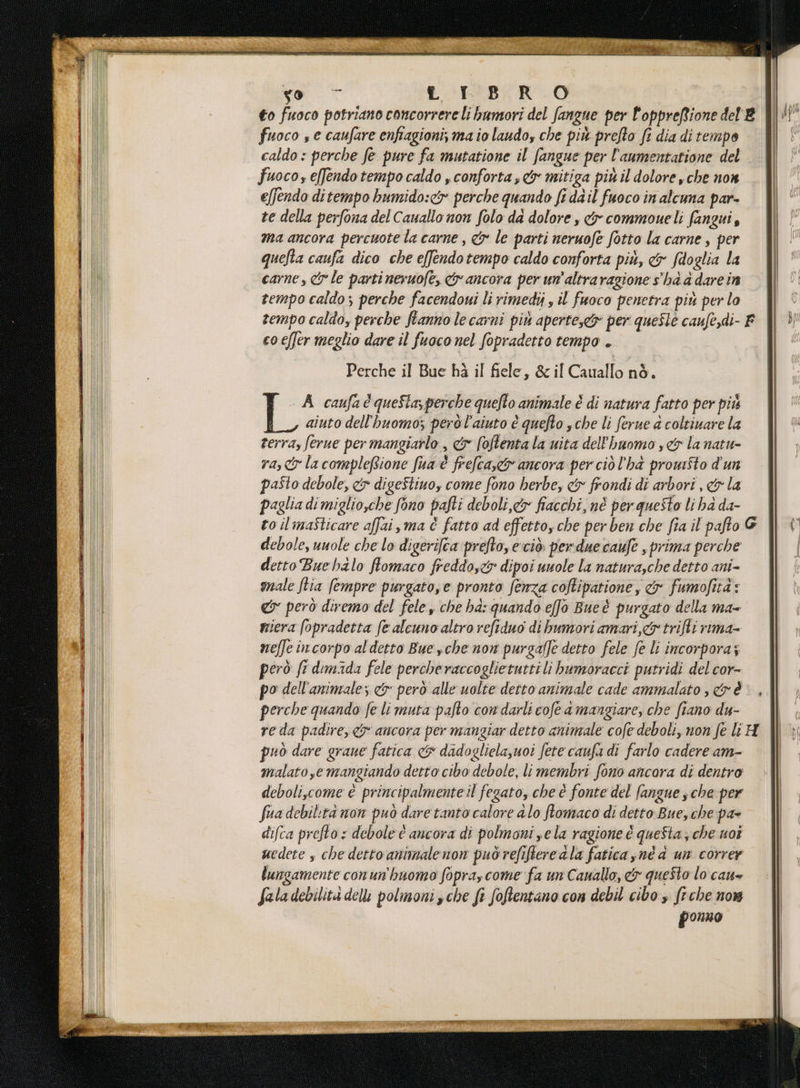 50 LIBRO
to fuoco potriano concorrere li humori del sangue per l'oppressione del E
fuoco, e causare enfiagioni; ma io laudo, che più presto si dia di tempo
caldo: perche se pure fa mutatione il sangue per l'aumentatione del
fuoco, essendo tempo caldo, conforta, & mitiga più il dolore, che non
essendo di tempo humido: & perche quando si dà il fuoco in alcuna par-
te della persona del Cauallo non solo dà dolore, & commoue li sangui,
ma ancora percuote la carne, & le parti neruose sotto la carne, per
questa causa dico che essendo tempo caldo conforta più, & sdoglia la
carne, & le parti neruose, & ancora per un'altra ragione s'hà à dare in
tempo caldo; perche facendoui li rimedij, il fuoco penetra più per lo
tempo caldo, perche stanno le carni più aperte, & per queste cause, di- F
co esser meglio dare il fuoco nel sopradetto tempo.
Perche il Bue hà il fiele, & il Cauallo nò.
LA causa è questa, perche questo animale è di natura fatto per più
aiuto dell'huomo; però l'aiuto è questo, che li serue à coltiuare la
terra, serue per mangiarlo, & sostenta la uita dell'huomo, & la natu-
ra, & la complessione sua è fresca, & ancora per ciò l'hà prouisto d'un
pasto debole, & digestiuo, come sono herbe, & frondi di arbori, & la
paglia di miglio, che sono pasti deboli, & fiacchi, nè per questo li hà da-
to il masticare assai, ma è fatto ad effetto, che per ben che sia il pasto G
debole, uuole che lo digerisca presto, e ciò per due cause, prima perche
detto Bue hà lo stomaco freddo, & dipoi uuole la natura, che detto ani-
male stia sempre purgato, e pronto senza costipatione, & fumosità:
& però diremo del fele, che hà: quando esso Bue è purgato della ma-
niera sopradetta se alcuno altro residuo di humori amari, & tristi rima-
nesse in corpo al detto Bue, che non purgasse detto fele se li incorpora;
però si dimàda fele perche raccoglie tutti li humoracci putridi del cor-
po dell'animale; & però alle uolte detto animale cade ammalato, & è
perche quando se li muta pasto con darli cose à mangiare, che siano du-
re da padire, & ancora per mangiar detto animale cose deboli, non se li H
può dare graue fatica & dàdogliela, uoi sete causa di farlo cadere am-
malato, e mangiando detto cibo debole, li membri sono ancora di dentro
deboli, come è principalmente il fegato, che è fonte del sangue, che per
sua debilità non può dare tanto calore à lo stomaco di detto Bue, che pa-
disca presto: debole è ancora di polmoni, e la ragione è questa, che uoi
uedete, che detto animale non può resistere à la fatica, nè à un correr
lungamente con un'huomo sopra, come fa un Cauallo, & questo lo cau-
sa la debilità delli polmoni, che si sostentano con debil cibo, si che non
ponno